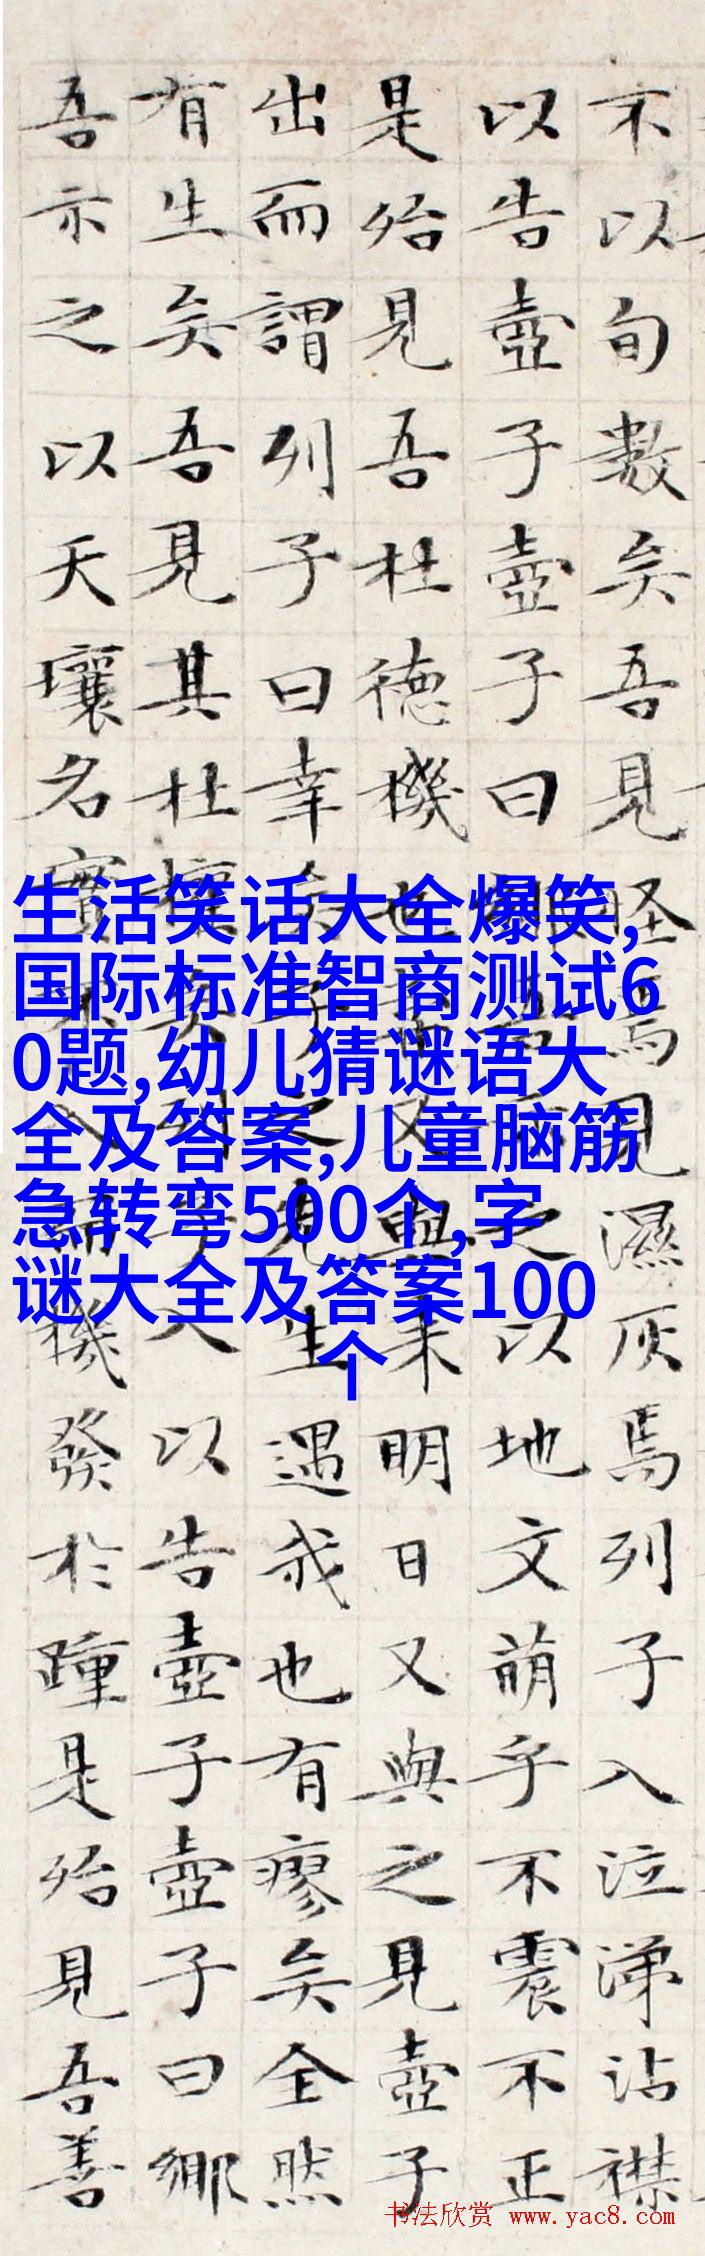 不以旬數矣吾見怪焉見濕灰焉列子入泣涕沾襟
以告壺子壺子曰鄉吾示之以地文萌乎不震不正
是殆見吾杜德機也嘗又與來明日又與之見壺子
出而謂列子曰幸矣子之先生遇我也有瘳矣全然
有生矣吾見其杜權矣列子入以告壺子壺子曰鄉
吾示之以天壤名實不入而機發於踵是殆見吾善
生活笑话大全爆笑,
国际标准智商测试6
0题,幼儿猜谜语大
全及答案,儿童脑筋
急转弯500个,字
谜大全及答案100
个
书法欣赏 www.yac8.com